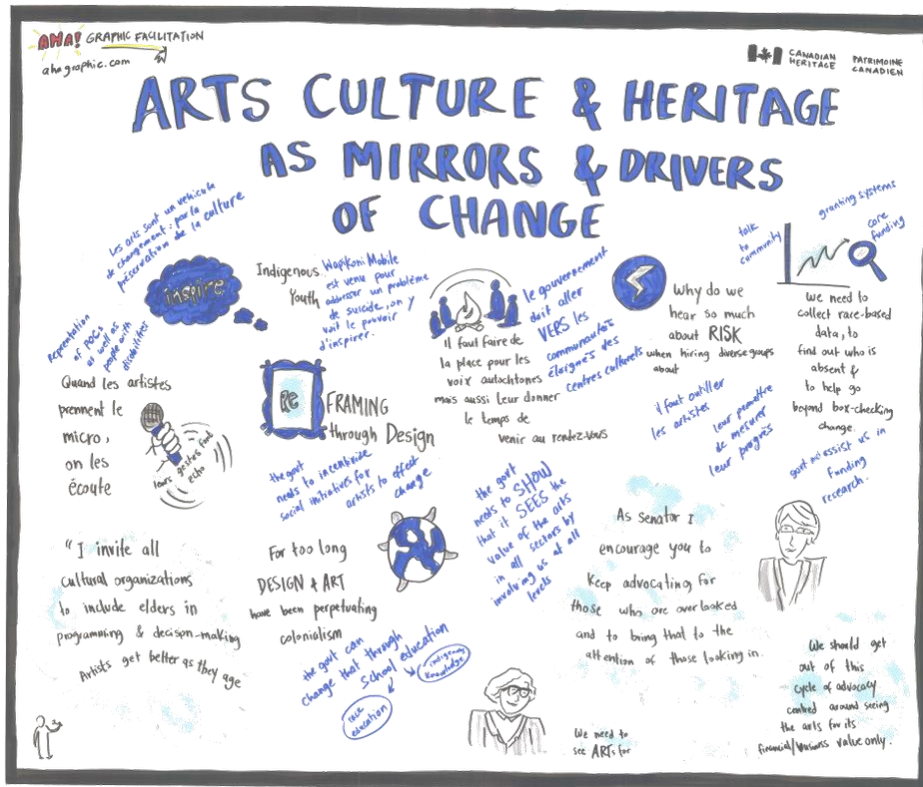 AHA! GRAPHIC FACILITATION
ahagraphic.com
CANADIAN
HERITAGE
PATRIMOINE
CANADIEN
ARTS CULTURE & HERITAGE
AS MIRRORS & DRIVERS
OF CHANGE
Les arts sont un vehicule
de changement : par la
préservation de la culture
inspire
Representation
of POCs
as well as
people with
disabilities
Quand les artistes
prennent le
micro,
on les
écoute
leurs gestes font
echo
Indigenous
Youth
Wapikoni Mobile
est venu pour
addresser un problème
de suicide, on y
voit le pouvoir
d'inspirer.
Re
FRAMING
through Design
the govt
needs to incentivize
social initiatives for
artists to effect
change
il faut faire de
la place pour les
voix autochtones
mais aussi leur donner
le temps de
venir au rendez-vous
le gouvernement
doit aller
VERS les
communautés
éloignés des
centres culturels
Why do we
hear so much
about RISK
when hiring diverse groups
about
il faut outiller
les artistes
leur permettre
de mesurer
leur progrès
talk
to
community
granting systems
core
funding
we need to
collect race-based
data, to
find out who is
absent &
to help go
beyond box-checking
change.
govt must assist us in
funding
research.
"I invite all
cultural organizations
to include elders in
programming & decision-making
Artists get better as they age
For too long
DESIGN & ART
have been perpetuating
colonialism
the govt can
change that through
School education
indigenous
knowledge
race
education
the govt
needs to SHOW
that it SEES the
value of the arts
in all sectors by
involving us at all
levels
As senator I
encourage you to
keep advocating for
those who are overlooked
and to bring that to the
attention of those looking in.
We need to
see ARTs for
We should get
out of this
cycle of advocacy
centred around seeing
the arts for its
financial/business value only.